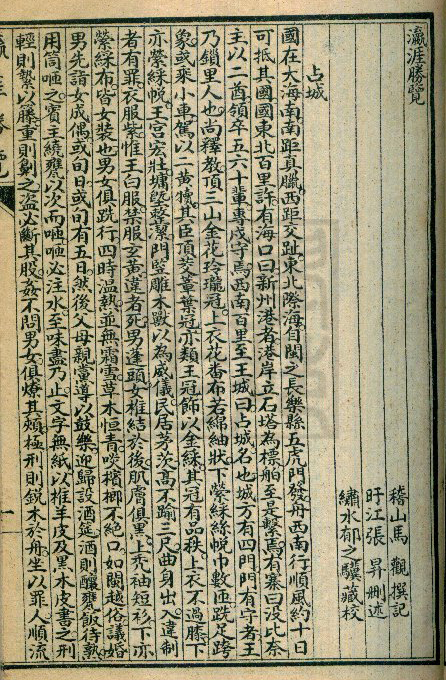 瀛涯勝覽
稽山馬　觀撰記
盱江張　昇刪述
繡水郁之驥藏校
占城
國在大海南南距真臘西距交趾東北際海自閩之長樂縣五虎門發舟西南行順風約十日
可抵其國國東北百里許有海口曰新州港者港岸立石塔為標舶至是繫焉有寨曰没比奈
主以二酋領卒五六十輩專戍守焉西南百里至王城曰占城名也城方有四門門有守者王
乃鎖里人也尚釋教頂三山金花玲瓏冠上衣花香布若綿紬狀下縈絲帨巾數匝跣足跨
象或乘小車駕以二黄犢其臣頂茭葦葉冠亦類王冠飾以金絲其冠有品秩上衣不過膝下
亦縈綵帨王宮宏壯墉甓整潔門竪雕木獸以為威儀民居茅茨高不踰三尺曲身出入違制
者有罪衣服紫惟王白服禁服玄黃違者死男蓬頭女椎結於後肌膚俱黑上秃袖短衫下亦
縈綵布皆女裝也男女俱跣行四時温熱並無霜雪草木恒青啖檳榔不絕口如閩越俗議婚
男先詣女成偶或旬日或旬有五日然後父母親黨導以鼓樂迎歸設酒筵酒則釀甕飯待熟
用筒咂之賓主繞甕以次而咂咂必注水至味盡乃止文字無紙以椎羊皮及黑木皮書之刑
輕則縶以籐重則劓之盜必斷其股姦不問男女俱燎其頰極刑則銳木於舟坐以罪人順流
瀛涯勝覽
一